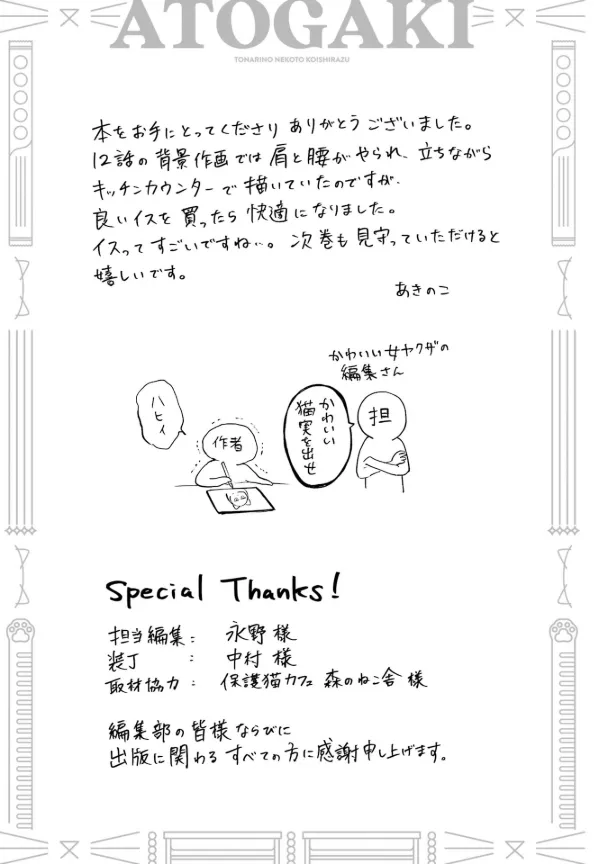 ATOGAKI
TONARINO NEKOTO KOISHIRAZU
本をお手にとってくださり ありがとうございました。
12話の背景作画では肩と腰がやられ、立ちながら
キッチンカウンターで描いていたのですが、
良いイスを買ったら快適になりました。
イスってすごいですね…。次巻も見守っていただけると
嬉しいです。
あきのこ
かわいい女ヤクザの
編集さん
担
かわいい
猫実を出せ
作者
ハヒィ
Special Thanks!
担当編集： 永野様
装丁 ： 中村様
取材協力： 保護猫カフェ 森のねこ舎 様
編集部の皆様ならびに
出版に関わるすべての方に感謝申し上げます。